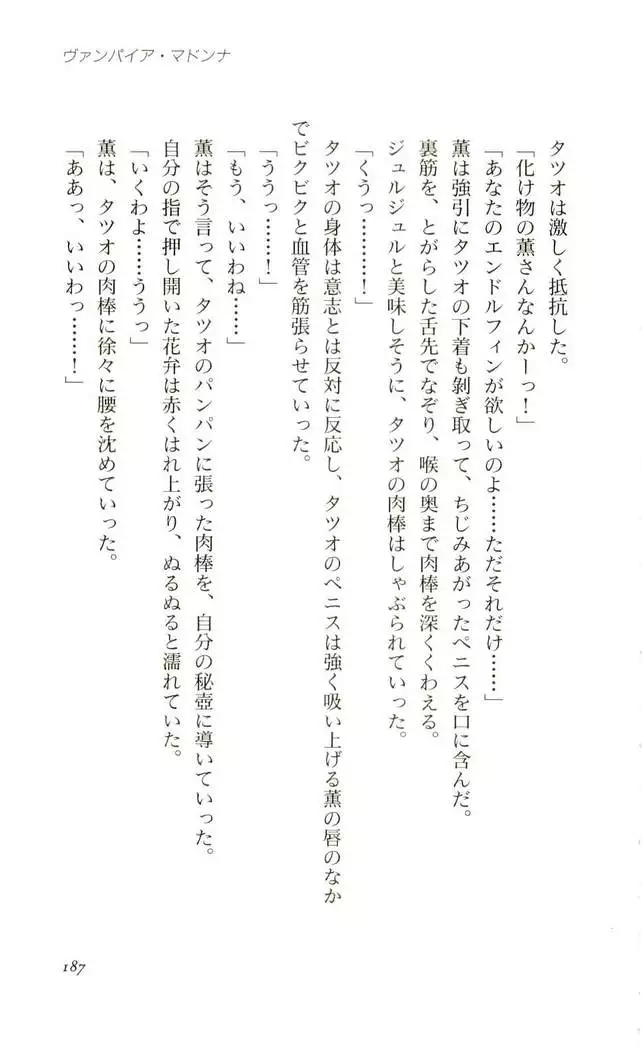 ヴァンパイア・マドンナ
タツオは激しく抵抗した。
「化け物の薫さんなんかーっ！」
「あなたのエンドルフィンが欲しいのよ……ただそれだけ……」
薫は強引にタツオの下着も剝ぎ取って、ちじみあがったペニスを口に含んだ。
裏筋を、とがらした舌先でなぞり、喉の奥まで肉棒を深くくわえる。
ジュルジュルと美味しそうに、タツオの肉棒はしゃぶられていった。
「くうっ………！」
タツオの身体は意志とは反対に反応し、タツオのペニスは強く吸い上げる薫の唇のなか
でビクビクと血管を筋張らせていった。
「ううっ………！」
「もう、いいわね……」
薫はそう言って、タツオのパンパンに張った肉棒を、自分の秘壺に導いていった。
自分の指で押し開いた花弁は赤くはれ上がり、ぬるぬると濡れていた。
「いくわよ……ううっ」
薫は、タツオの肉棒に徐々に腰を沈めていった。
「ああっ、いいわっ………！」
187